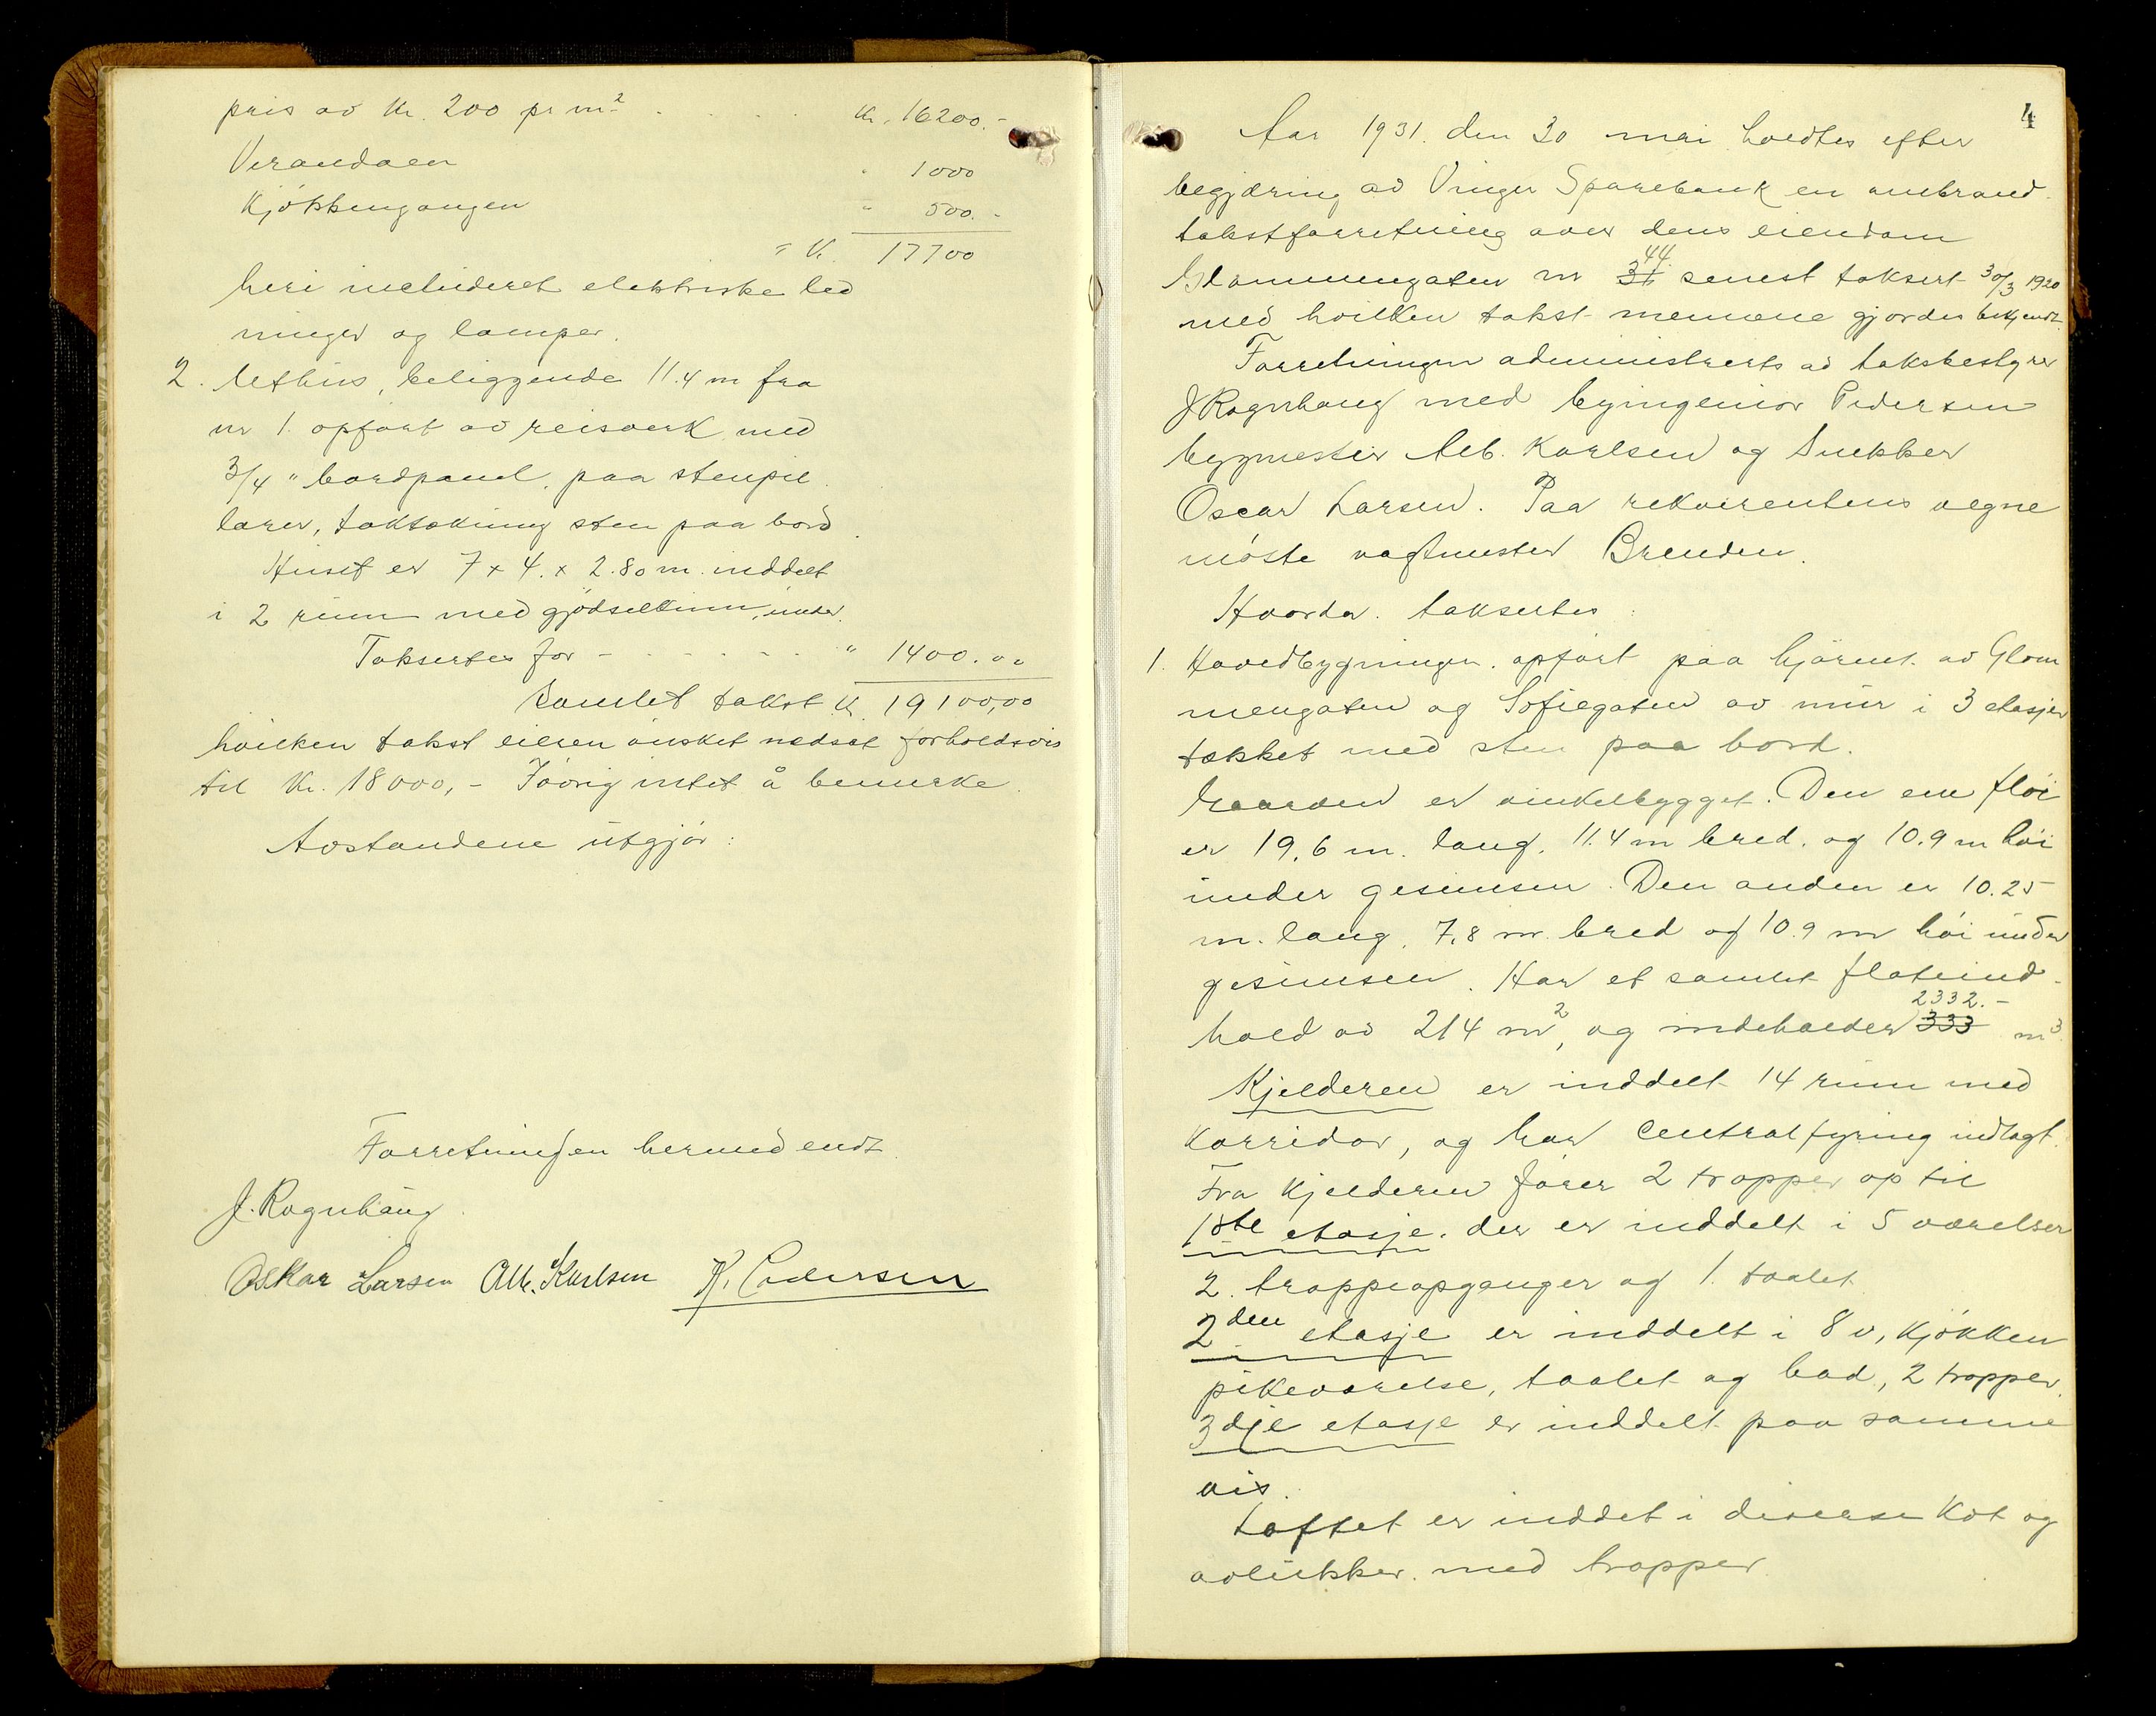 pris av Kr. 200 pr m² . . . . . Kr. 16200.-
Verandaen " 1000
Kjökkengangen " 500.-
= Kr. 17700
heri includeret elektriske led
ninger og lamper.
2. Uthus, beliggende 11.4 m fra
nr 1. opført av reisverk med
3/4" bordpanel, paa stenpil
larer, taktækning sten paa bord
Huset er 7 x 4. x 2.80 m. inddelt
i 2 rum med gjödselkum, under.
Taksertes for - - - - - - " 1400.00
Samlet takst Kr. 19100,00
hvilken takst eieren ønsket nedsat forholdsvis
til Kr. 18000,- Iøvrig intet å bemerke.
Avstandene utgjør:
Forretningen hermed endt
J. Rognhaug
Oskar Larsen Alb. Karlsen K. Pedersen
4
Aar 1931. den 30 mai holdtes efter
begjæring av Vinger Sparebank en ombrand
takstforretning over dens eiendom
44.
Glommengaten nr 31 senest taksert 30/3 1920
med hvilken takst mennene gjordes bekjendt.
Forretningen administrerts av takstbestyrer
J Rognhaug med byingeniør Pedersen
bygmester Alb. Karlsen og Snekker
Oscar Larsen. Paa rekvirentens vegne
møtte vagtmester Brenden.
Hvorda. taksertes:
1. Hovedbygningen. opført paa hjørnet av Glom
mengaten og Sofiegaten av mur i 3 etasjer
tækket med sten paa bord.
Gaarden er vinkelbygget. Den ene fløi
er 19,6 m. lang, 11.4 m bred, og 10.9 m høi
under gesimsen. Den anden er 10.25
m. lang, 7,8 m. bred og 10.9 m høi under
gesimsen. Har et samlet flateind-
2332.-
hold av 214 m², og indeholder 333 m³.
Kjelderen er inddelt 14 rum med
korridor, og har centralfyring indlagt.
Fra kjelderen fører 2 trapper op til
1ste etasje. der er inddelt i 5 værelser
2. trappeopganger og 1. toalet
2den etasje er inddelt i 8 v, kjøkken
pikeværelse, toalet og bad, 2 trapper.
3dje etasje er inddelt paa samme
vis.
Loftet er inddet i diverse kot og
avlukker. med trapper.